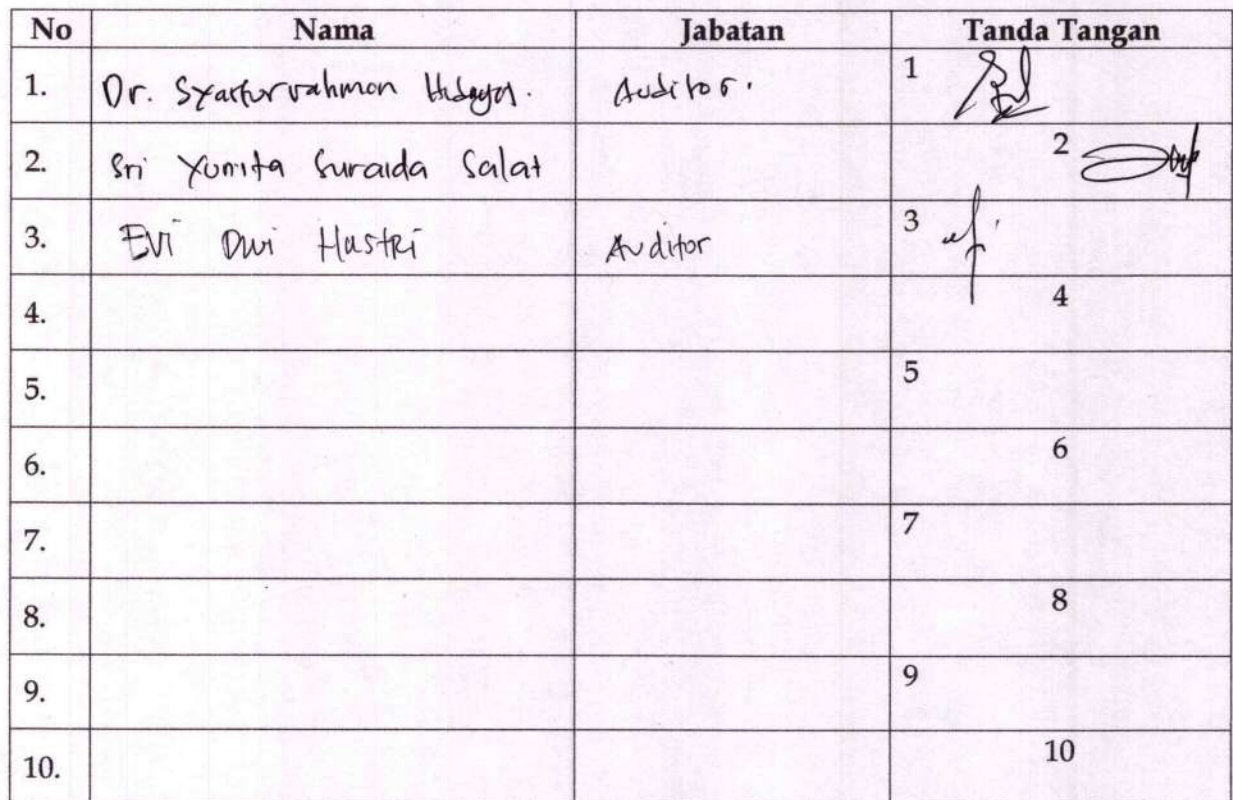 No Nama Jabatan Tanda Tangan
1. Dr. Syaifurrahman Hidayat. Auditor. 1
2. Sri Yunita Suraida Salat 2
3. Evi Dwi Hastri Auditor 3
4. 4
5. 5
6. 6
7. 7
8. 8
9. 9
10. 10